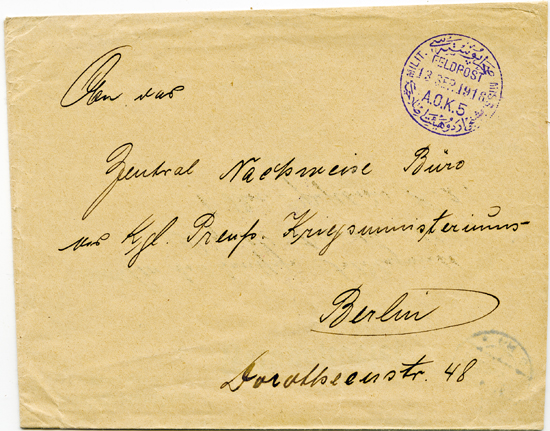 MILIT. MISS.
FELDPOST
13 SEP. 1918
A.O.K.5
An das
Zentral Nachweise Büro
des Kgl. Preuß. Kriegsministeriums
Berlin
Dorotheenstr. 48